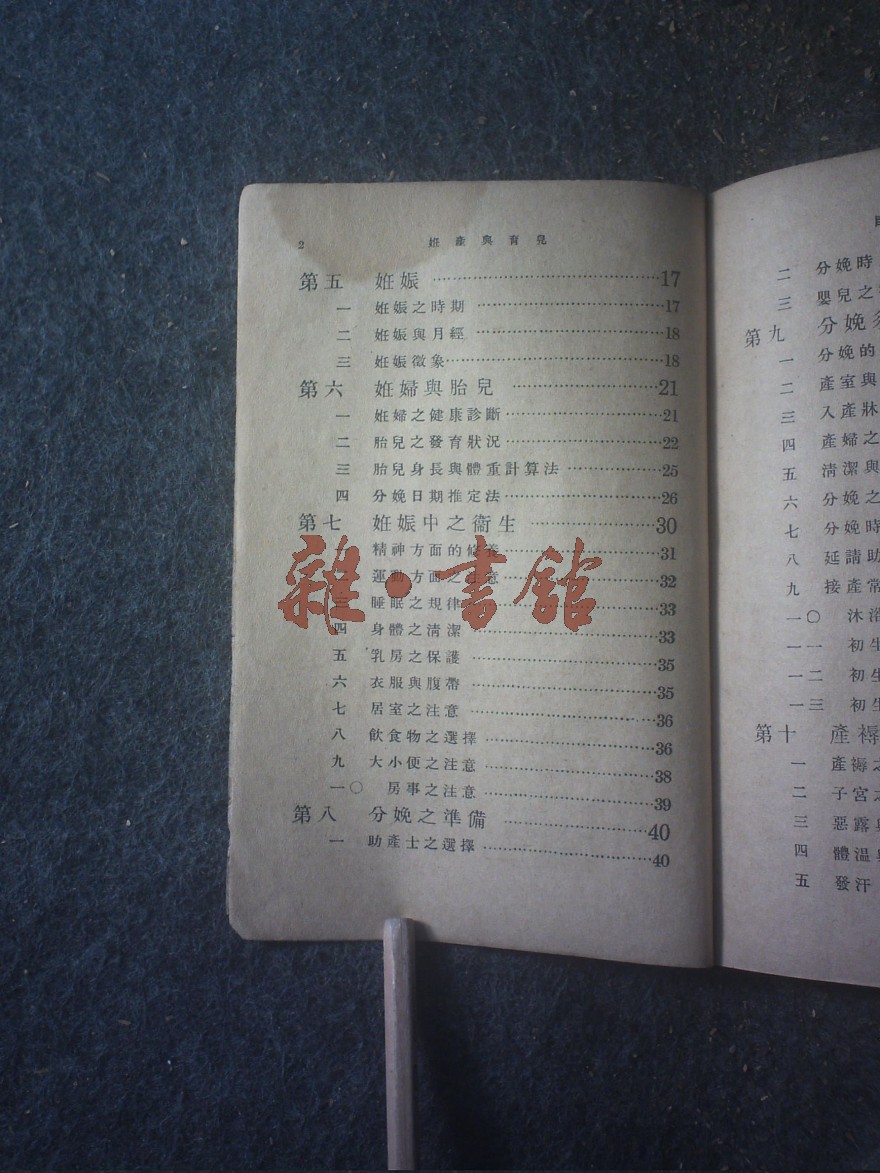 2
姙產與育兒
第五 姙娠 17
一 姙娠之時期 17
二 姙娠與月經 18
三 姙娠徵象 18
第六 姙婦與胎兒 21
一 姙婦之健康診斷 21
二 胎兒之發育狀況 22
三 胎兒身長與體重計算法 25
四 分娩日期推定法 26
第七 姙娠中之衞生 30
精神方面的修養 31
運動方面之注意 32
三 睡眠之規律 33
四 身體之淸潔 33
五 乳房之保護 35
六 衣服與腹帶 35
七 居室之注意 36
八 飮食物之選擇 36
九 大小便之注意 38
一〇 房事之注意 39
第八 分娩之準備 40
一 助產士之選擇 40
雜·書館
二 分娩時
三 嬰兒之
第九 分娩
一 分娩的
二 產室與
三 入產牀
四 產婦之
五 淸潔與
六 分娩之
七 分娩時
八 延請助
九 接產常
一〇 沐浴
一一 初生
一二 初生
一三 初生
第十 產褥
一 產褥之
二 子宮之
三 惡露與
四 體溫與
五 發汗